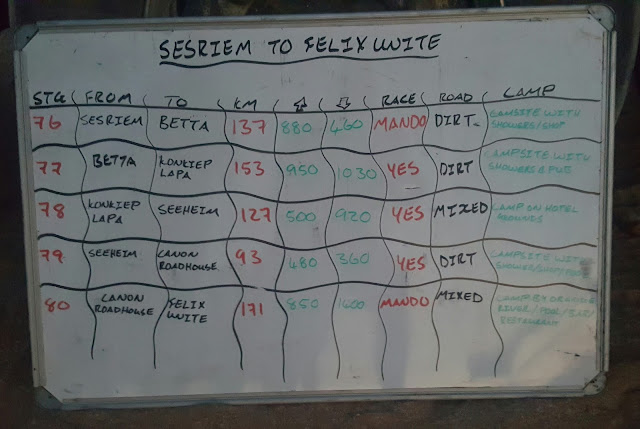 SESRIEM TO FELIX UNITE
STG FROM TO KM ⇧ ⇩ RACE ROAD CAMP
76 SESRIEM BETTA 137 880 460 MANDO DIRT CAMPSITE WITH
SHOWERS/SHOP
77 BETTA KONKIEP 153 950 1030 YES DIRT CAMPSITE WITH
LAPA SHOWERS & PUB
78 KONKIEP SEEHEIM 127 500 920 YES MIXED CAMP ON HOTEL
LAPA GROUNDS
79 SEEHEIM CANON 93 480 360 YES DIRT CAMPSITE WITH
ROADHOUSE SHOWER/SHOP/
80 CANON FELIX 171 850 MANDO MIXED CAMP BY
ROADHOUSE UNITE RIVER/POOL/BAR/
RESTAURANT